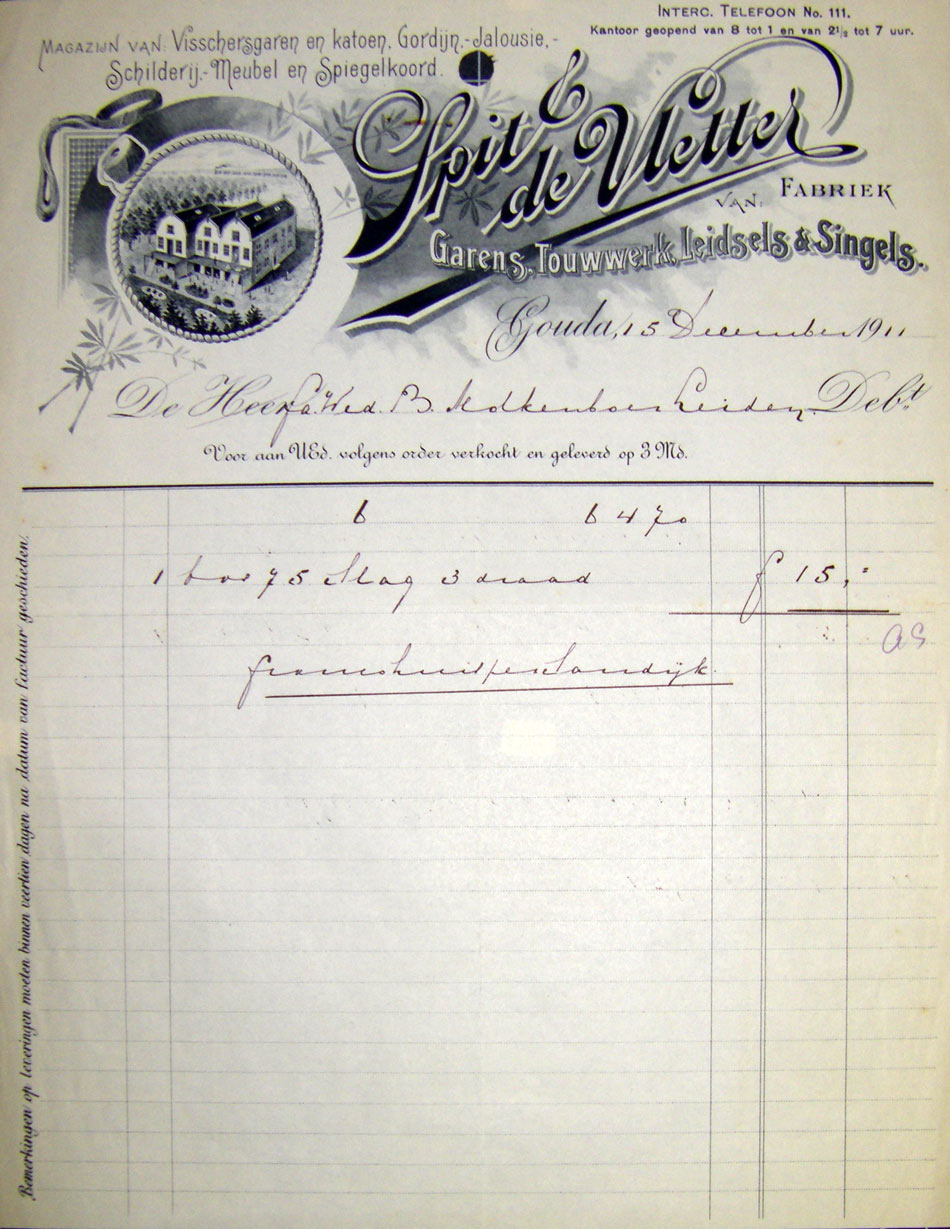 INTERC. TELEFOON No. 111.
Kantoor geopend van 8 tot 1 en van 2½ tot 7 uur.
MAGAZIJN VAN: Visschersgaren en katoen, Gordijn,-Jalousie,-
Schilderij,-Meubel en Spiegelkoord.
Spit &
de Vletter
FABRIEK
VAN:
Garens, Touwwerk, Leidsels & Singels.
Gouda, 15 December 1911
De Heer fa. Wed. B. Molkenboer Leiden Debt
Voor aan UEd. volgens order verkocht en geleverd op 3 Md.
b b 470
1 bos 75 Slag 3 draad f 15,-
franco huis per Sandijk
Bemerkingen op leveringen moeten binnen veertien dagen na datum van factuur geschieden.